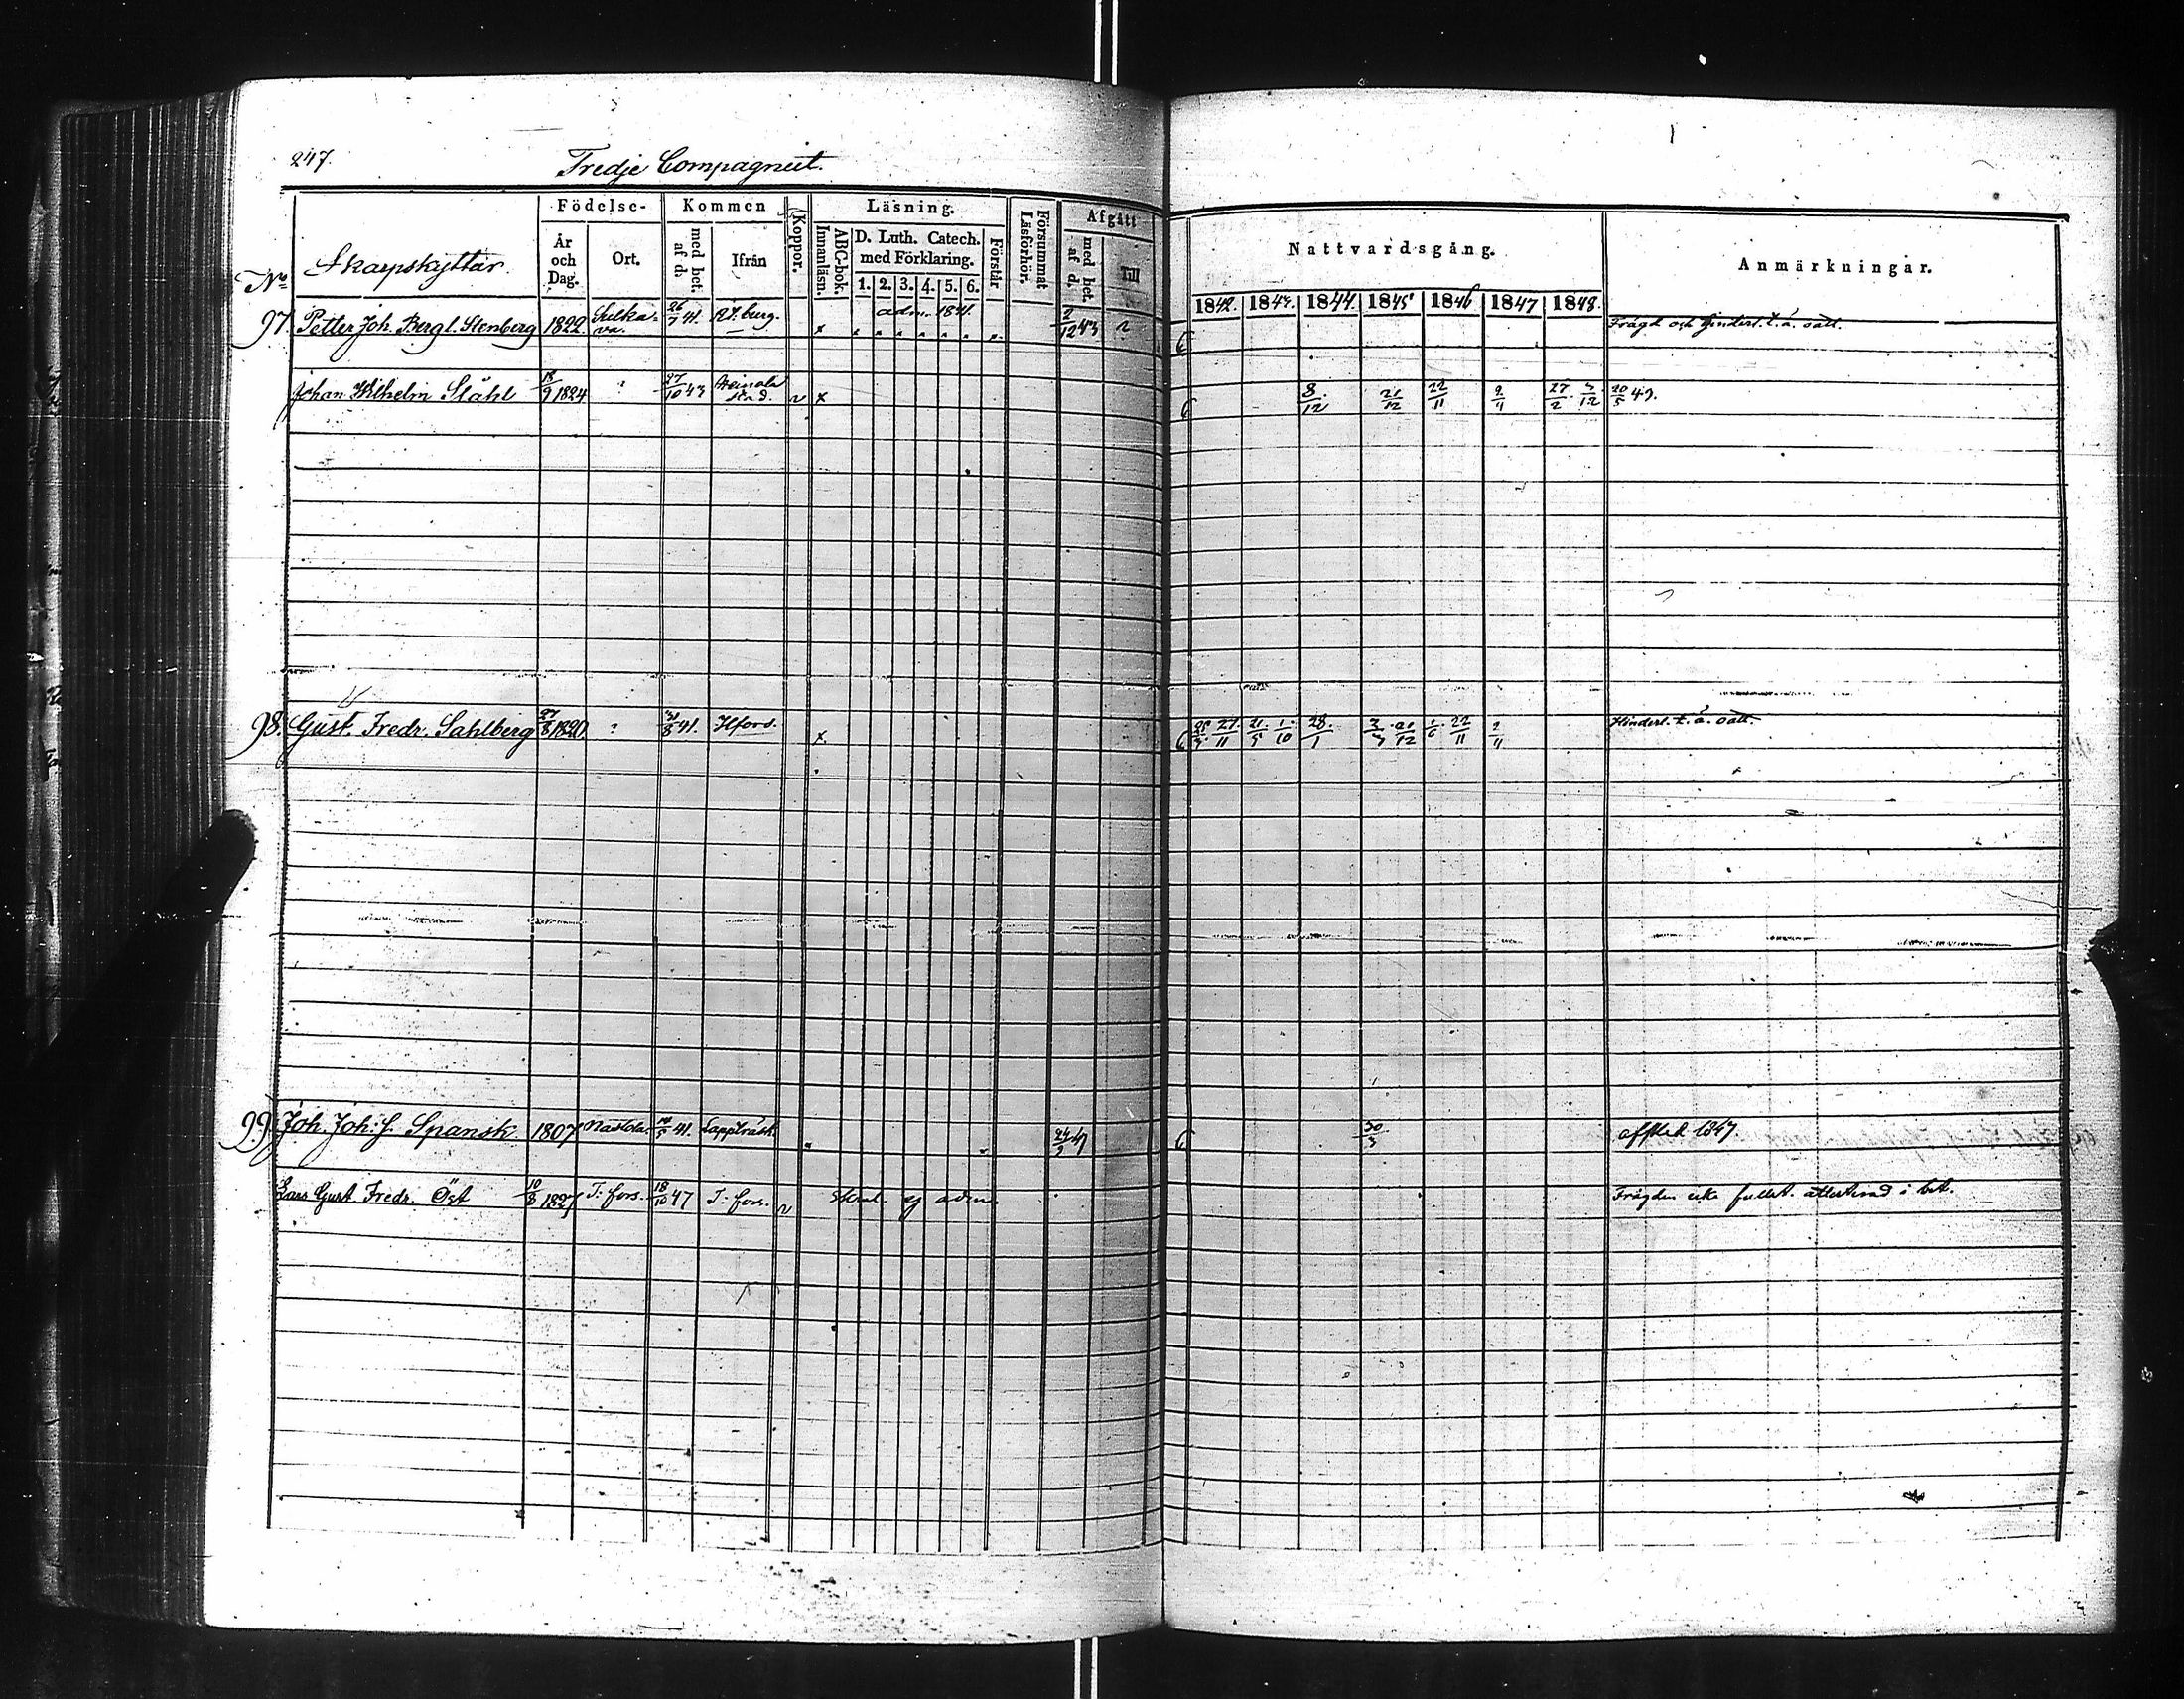 247.
Tredje Compagniet.
Födelse- Kommen Koppor. Läsning. Försummat Läsförhör. Afgått
Nattvardsgång. Anmärkningar.
No Skarpskyttar. År och Dag. Ort. med bet. af d. Ifrån ABC-bok. Innanläsn. D. Luth. Catech. med Förklaring. Förstår med bet. af d. Till
1. 2. 3. 4. 5. 6.
1842. 1843. 1844. 1845 1846 1847 1848.
97. Petter Joh. Bergl. Stenberg 1822 Sulkava. 26/7 41. adm. 1841. 2/12 43 Frägd och Hinderl. t. å. satt.
Johan Wilhelm Ståhl 18/9 1824 27/10 43 Heinola stad. 8/12 21/12 22/11 2/11 27/2 3/12 20/5 49.
98. Gust. Fredr. Sahlberg 27/8 1820. 31/8 41. Hfors. 27/11 21/5 1/10 28/1 2/3 21/12 1/6 22/11 2/11 Hinderl. t. å. satt.
99. Joh. Joh: S. Spansk 1807 Nastola 41. Lappträsk. 24/3 47 30/3 afsked 1847.
Lars Gust. Fredr. Öst 10/8 1827 T: fors. 18/10 47 T: fors. ej adm. Frägden icke fullst. attesterad i bet.